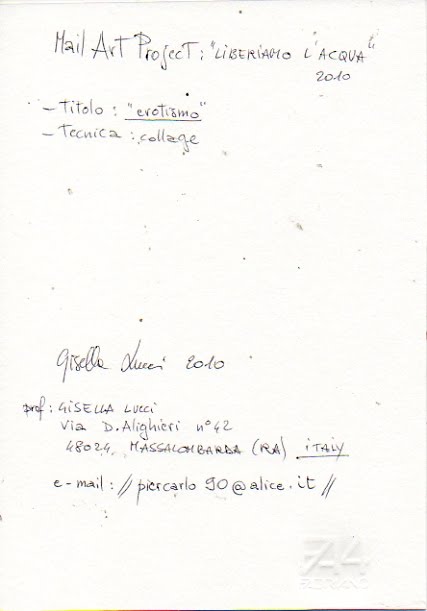 Mail Art Project: "LIBERIAMO L'ACQUA"
2010
- Titolo: "erotismo"
- Tecnica: collage
Gisella Lucci 2010
prof: GISELLA LUCCI
Via D. Alighieri n° 42
48024 MASSALOMBARDA (RA) ITALY
e-mail: // piercarlo90@alice.it //
F4
FABRIANO